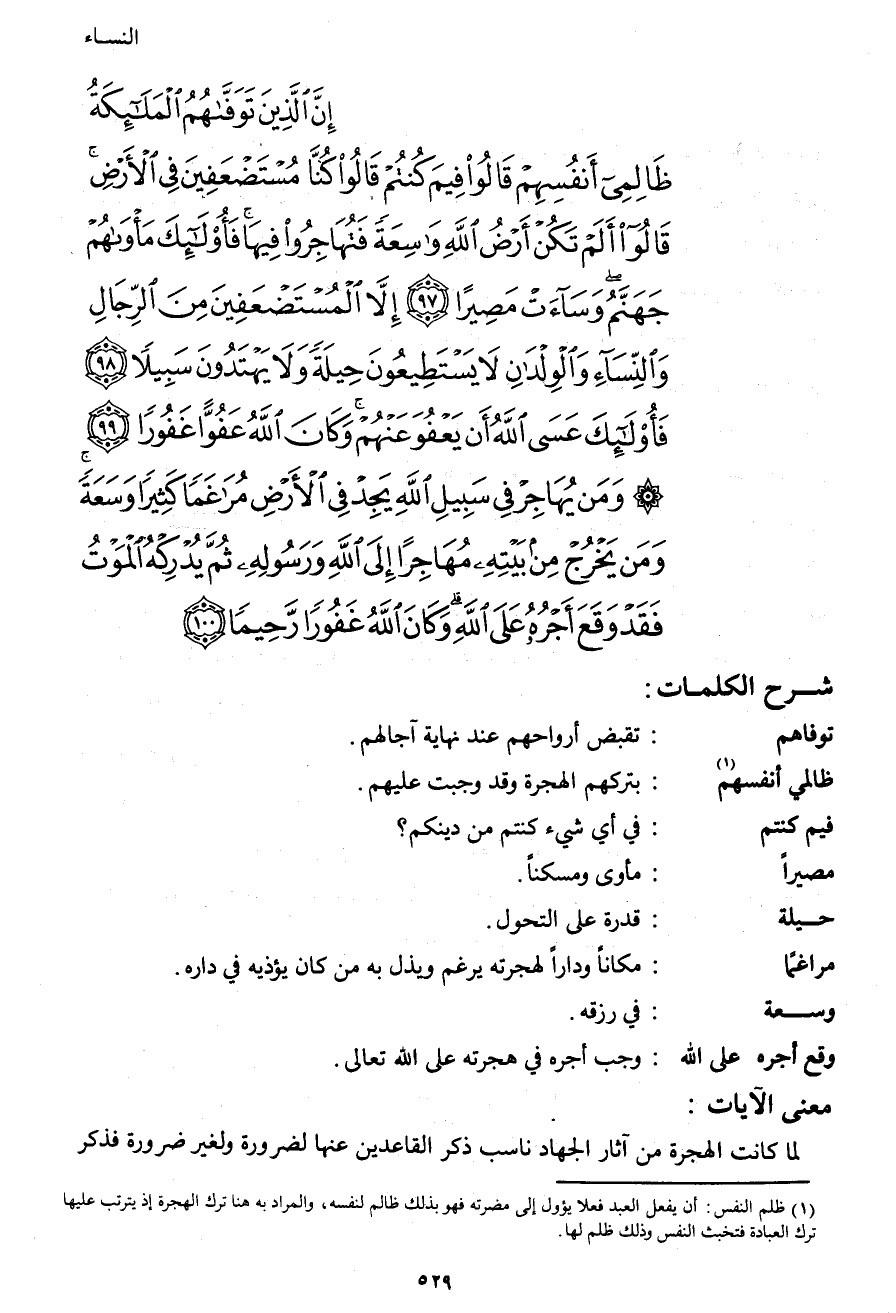 النساء
إِنَّ ٱلَّذِينَ تَوَفَّىٰهُمُ ٱلْمَلَـٰٓئِكَةُ
ظَالِمِىٓ أَنفُسِهِمْ قَالُوا۟ فِيمَ كُنتُمْ قَالُوا۟ كُنَّا مُسْتَضْعَفِينَ فِى ٱلْأَرْضِ ۚ
قَالُوٓا۟ أَلَمْ تَكُنْ أَرْضُ ٱللَّهِ وَٰسِعَةً فَتُهَاجِرُوا۟ فِيهَا ۚ فَأُو۟لَـٰٓئِكَ مَأْوَىٰهُمْ
جَهَنَّمُ ۖ وَسَآءَتْ مَصِيرًا ﴿٩٧﴾ إِلَّا ٱلْمُسْتَضْعَفِينَ مِنَ ٱلرِّجَالِ
وَٱلنِّسَآءِ وَٱلْوِلْدَٰنِ لَا يَسْتَطِيعُونَ حِيلَةً وَلَا يَهْتَدُونَ سَبِيلًا ﴿٩٨﴾
فَأُو۟لَـٰٓئِكَ عَسَى ٱللَّهُ أَن يَعْفُوَ عَنْهُمْ ۚ وَكَانَ ٱللَّهُ عَفُوًّا غَفُورًا ﴿٩٩﴾
۞ وَمَن يُهَاجِرْ فِى سَبِيلِ ٱللَّهِ يَجِدْ فِى ٱلْأَرْضِ مُرَٰغَمًا كَثِيرًا وَسَعَةً ۚ
وَمَن يَخْرُجْ مِنۢ بَيْتِهِۦ مُهَاجِرًا إِلَى ٱللَّهِ وَرَسُولِهِۦ ثُمَّ يُدْرِكْهُ ٱلْمَوْتُ
فَقَدْ وَقَعَ أَجْرُهُۥ عَلَى ٱللَّهِ ۗ وَكَانَ ٱللَّهُ غَفُورًا رَّحِيمًا ﴿١٠٠﴾
شـرح الكلمـات :
توفاهم : تقبض أرواحهم عند نهاية آجالهم .
ظالمي أنفسهم (١) : بتركهم الهجرة وقد وجبت عليهم .
فيم كنتم : في أي شيء كنتم من دينكم؟
مصيراً : مأوى ومسكناً .
حـيلة : قدرة على التحول .
مراغمًا : مكاناً وداراً لهجرته يرغم ويذل به من كان يؤذيه في داره .
وسـعة : في رزقه .
وقع أجره على الله : وجب أجره في هجرته على الله تعالى .
معنى الآيات :
لما كانت الهجرة من آثار الجهاد ناسب ذكر القاعدين عنها لضرورة ولغير ضرورة فذكر
(١) ظلم النفس : أن يفعل العبد فعلا يؤول إلى مضرته فهو بذلك ظالم لنفسه، والمراد به هنا ترك الهجرة إذ يترتب عليها
ترك العبادة فتخبث النفس وذلك ظلم لها .
٥٢٩